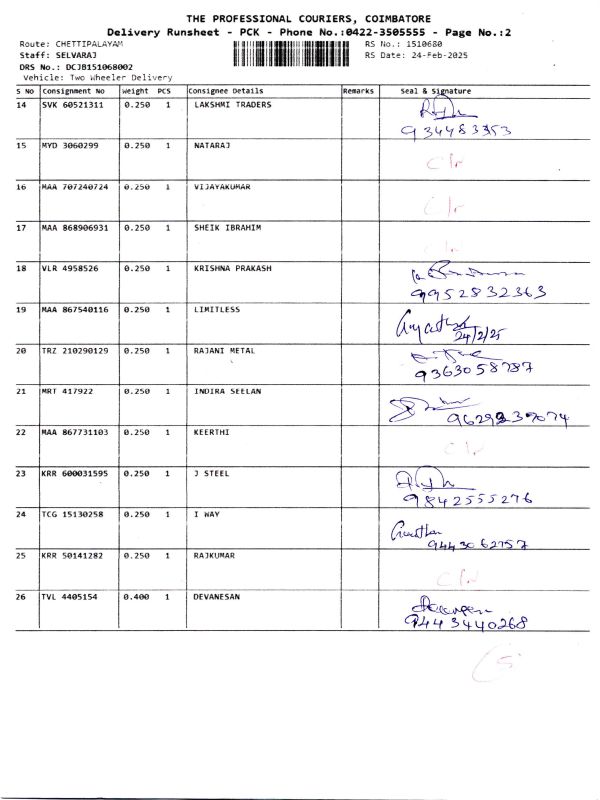 THE PROFESSIONAL COURIERS, COIMBATORE
Delivery Runsheet - PCK - Phone No.:0422-3505555 - Page No.:2
Route: CHETTIPALAYAM RS No.: 1510680
Staff: SELVARAJ RS Date: 24-Feb-2025
DRS No.: DCJB151068002
Vehicle: Two Wheeler Delivery
S No Consignment No Weight PCS Consignee Details Remarks Seal & Signature
14 SVK 60521311 0.250 1 LAKSHMI TRADERS
15 MYD 3060299 0.250 1 NATARAJ
16 MAA 707240724 0.250 1 VIJAYAKUMAR
17 MAA 868906931 0.250 1 SHEIK IBRAHIM
18 VLR 4958526 0.250 1 KRISHNA PRAKASH
9952832363
19 MAA 867540116 0.250 1 LIMITLESS
24/2/25
20 TRZ 210290129 0.250 1 RAJANI METAL
9363058787
21 MRT 417922 0.250 1 INDIRA SEELAN
22 MAA 867731103 0.250 1 KEERTHI
23 KRR 600031595 0.250 1 J STEEL
9842555276
24 TCG 15130258 0.250 1 I WAY
25 KRR 50141282 0.250 1 RAJKUMAR
26 TVL 4405154 0.400 1 DEVANESAN
9443440268